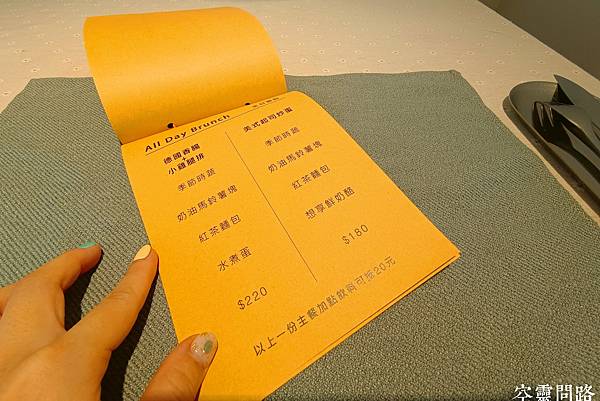 All Day Brunch
德國香腸
+
小雞腿排
季節時蔬
奶油馬鈴薯塊
紅茶麵包
水煮蛋
$220
美式起司炒蛋
季節時蔬
奶油馬鈴薯塊
紅茶麵包
想享鮮奶酪
$180
以上一份主餐加點飲料可折20元
空靈問路